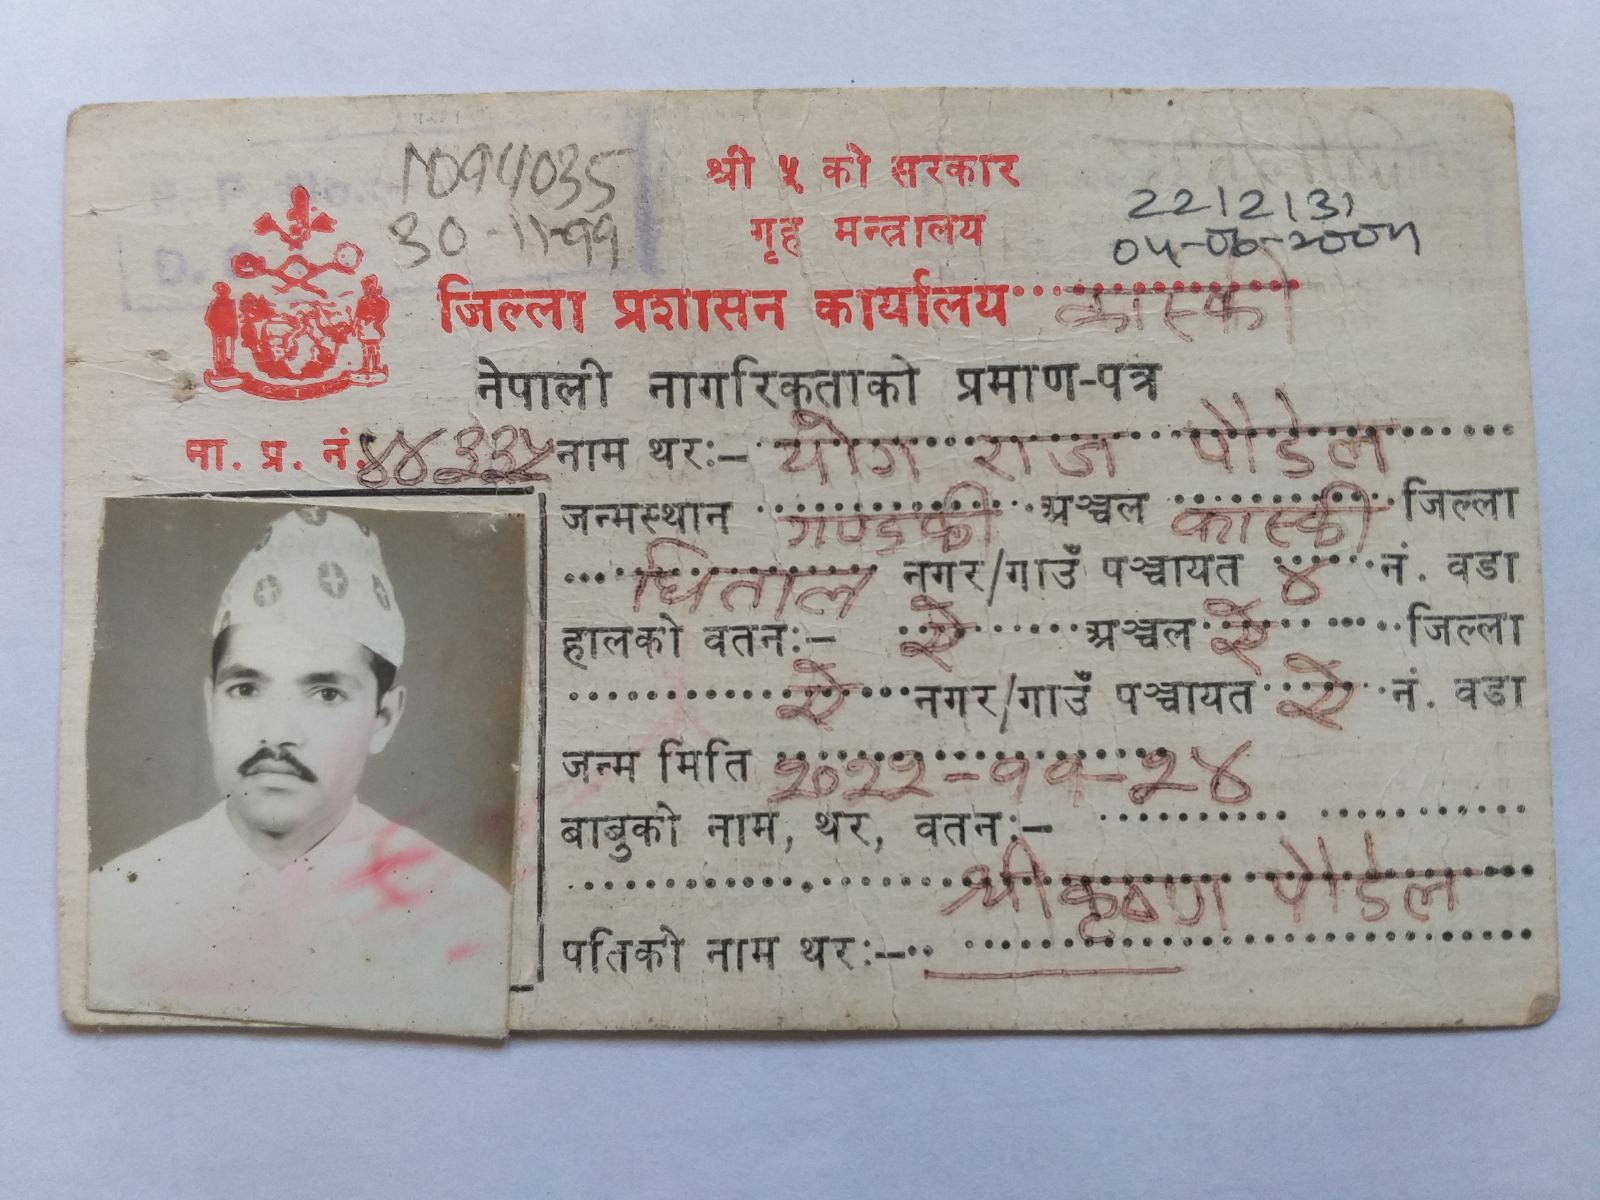 1094035
30-11-99
श्री ५ को सरकार
गृह मन्त्रालय
2212131
04-06-2004
जिल्ला प्रशासन कार्यालय कास्की
नेपाली नागरिकताको प्रमाण-पत्र
ना. प्र. नं. ४४३३५ नाम थर:- योग राज पौडेल
जन्मस्थान गण्डकी अञ्चल कास्की जिल्ला
धिताल नगर/गाउँ पञ्चायत ४ नं. वडा
हालको वतन:- ऐ अञ्चल ऐ जिल्ला
ऐ नगर/गाउँ पञ्चायत ऐ नं. वडा
जन्म मिति २०२२-११-२४
बाबुको नाम, थर, वतन:-
श्रीकृष्ण पौडेल
पतिको नाम थर:-